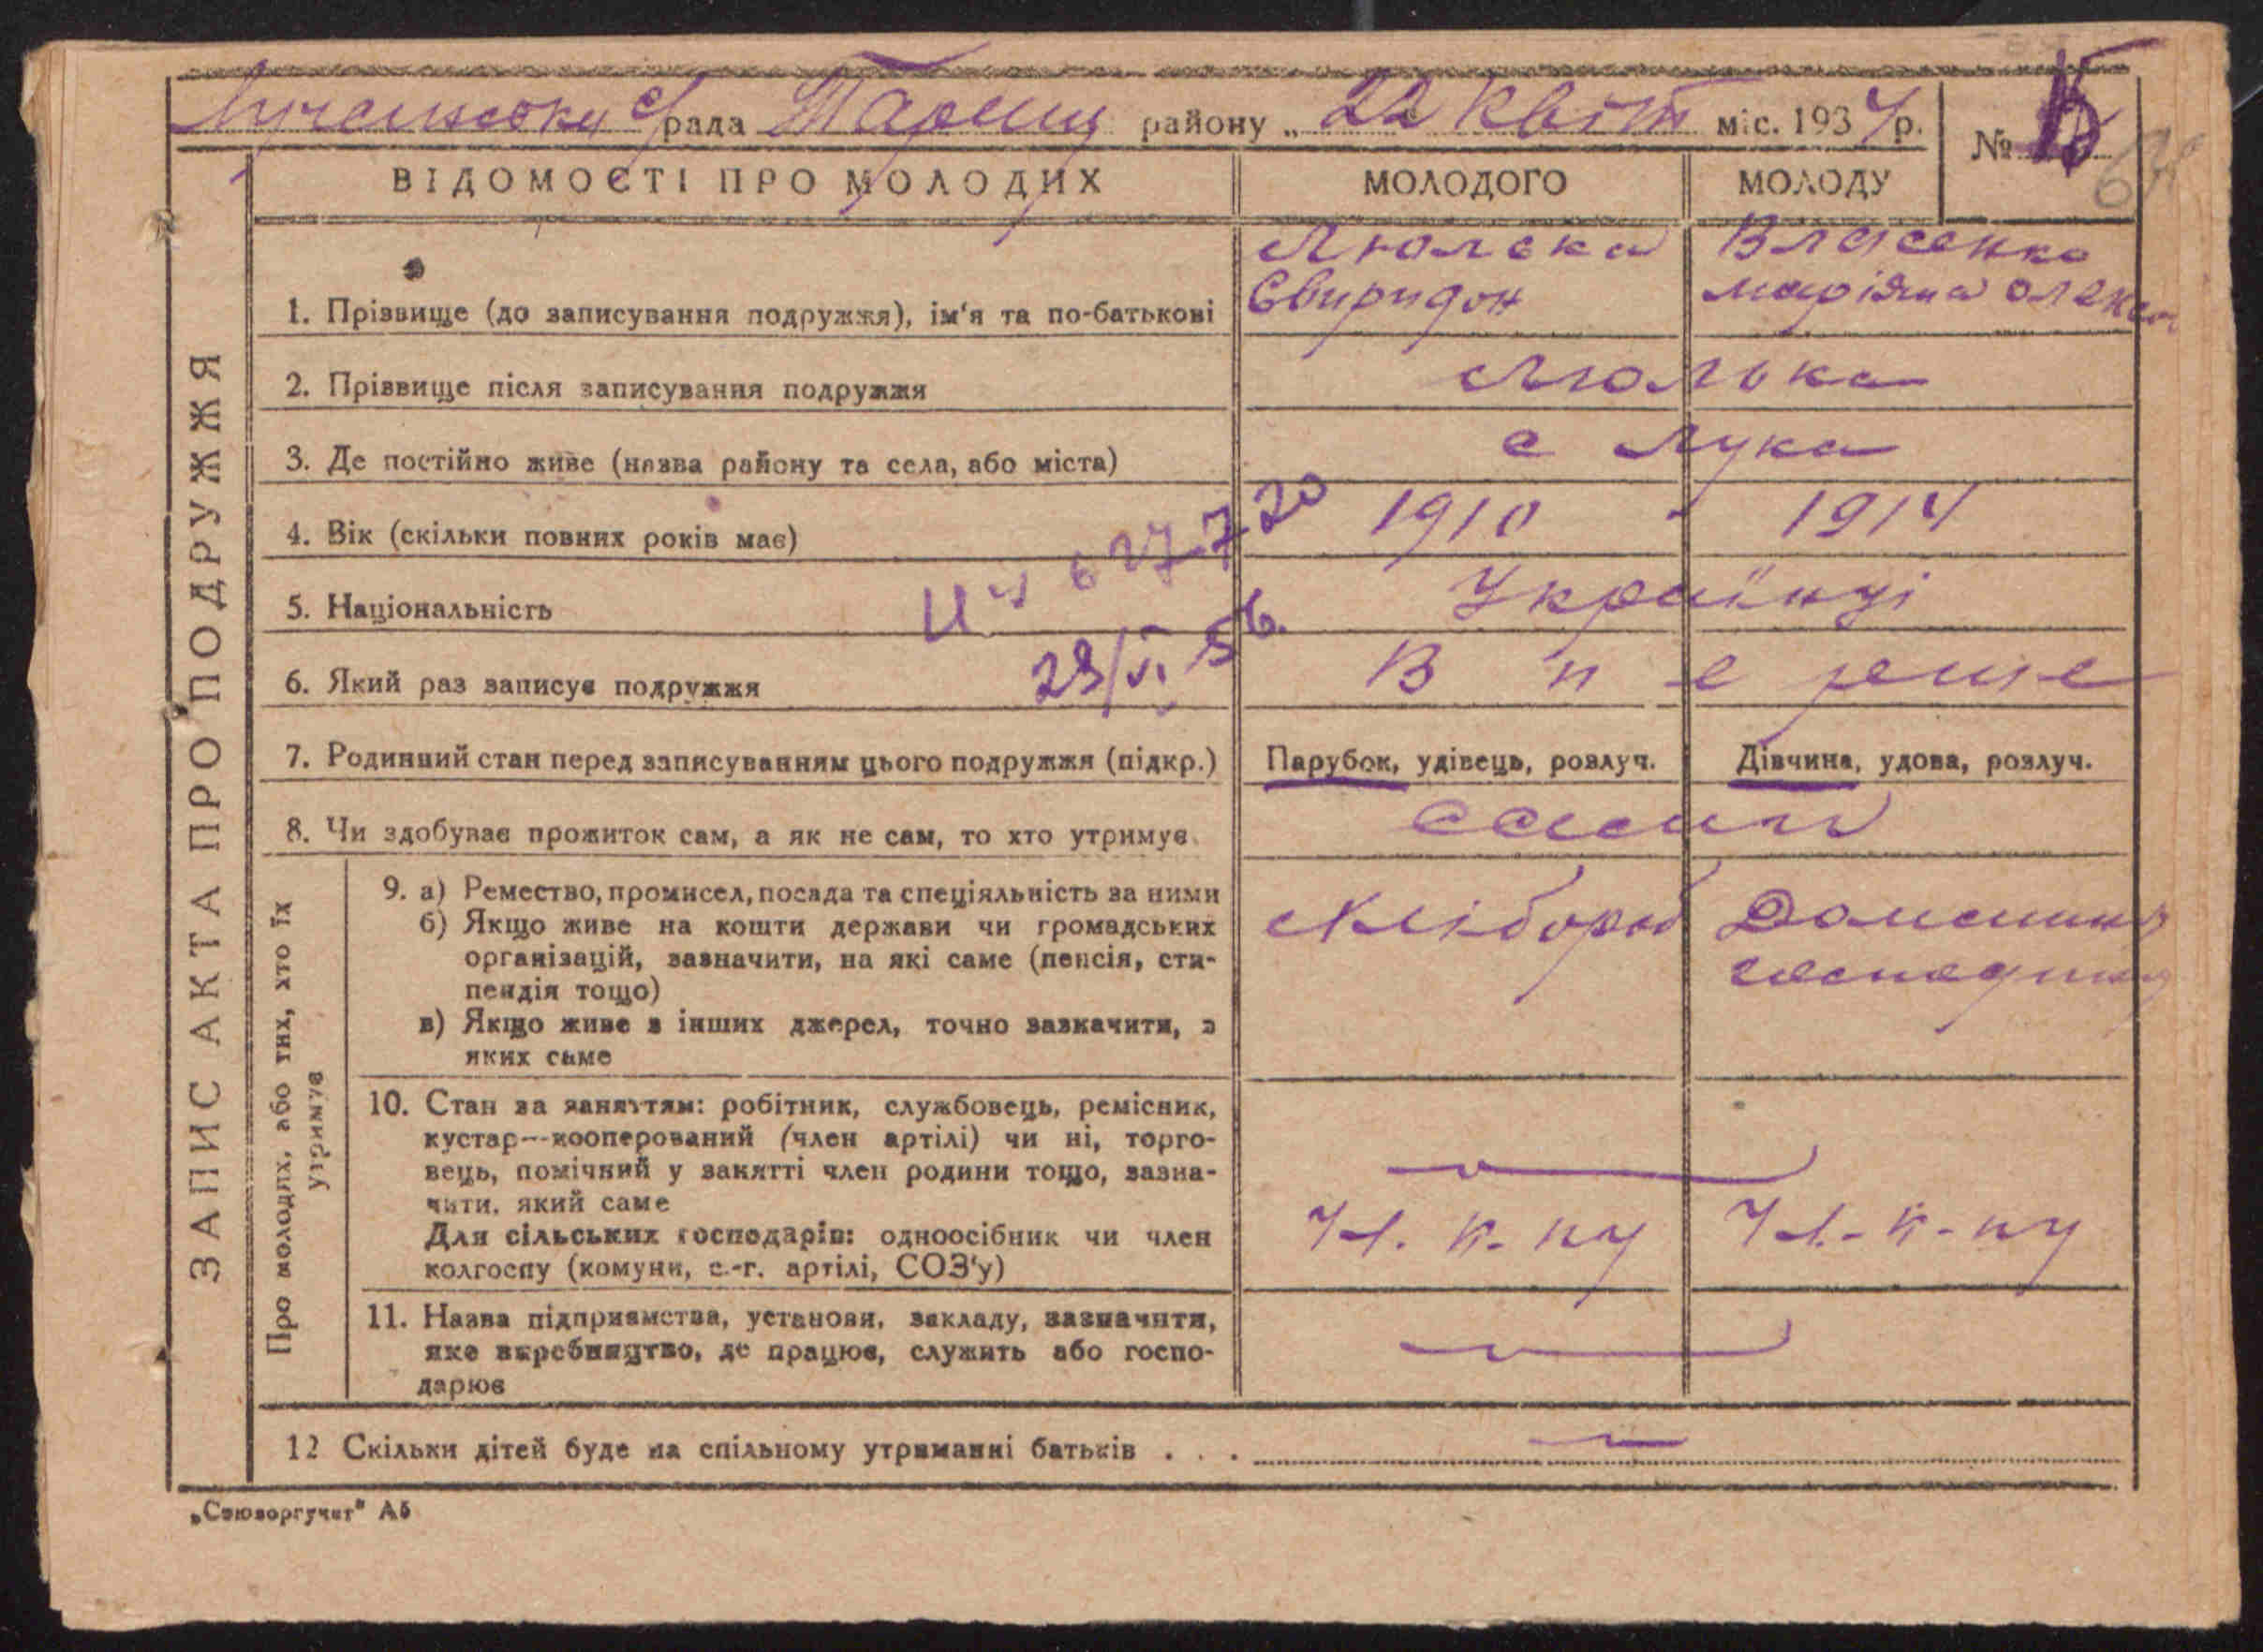 с/рада Таращ району „ 22 Квіт міс. 1934 р. № 15
ВІДОМОСТІ ПРО МОЛОДИХ МОЛОДОГО МОЛОДУ
1. Прізвище (до записування подружжя), ім'я та по-батькові Люлька Свиридон Власенко Маріяна Олекс
2. Прізвище після записування подружжя Люлька
3. Де постійно живе (назва району та села, або міста) с Лука
4. Вік (скільки повних років має) 1910 1914
5. Національність Українці
6. Який раз записує подружжя Вперше
23/VI 56.
7. Родинний стан перед записуванням цього подружжя (підкр.) Парубок, удівець, розлуч. Дівчина, удова, розлуч.
8. Чи здобуває прожиток сам, а як не сам, то хто утримує сами
ЗАПИС АКТА ПРО ПОДРУЖЖЯ
Про молодих, або тих, хто їх утримує
9. а) Ремество, промисел, посада та спеціяльність за ними Хлібороб Домашня
б) Якщо живе на кошти держави чи громадських господиня
організацій, зазначити, на які саме (пенсія, сти-
пендія тощо)
в) Якщо живе з інших джерел, точно зазначити, з
яких саме
10. Стан за заняттям: робітник, службовець, ремісник,
кустар—кооперований (член артілі) чи ні, торго-
вець, помічний у занятті член родини тощо, зазна-
чити, який саме
Для сільських господарів: одноосібник чи член Чл. к-пу Чл.-к-пу
колгоспу (комуни, с.-г. артілі, СОЗ'у)
11. Назва підприємства, установи, закладу, зазначити,
яке виробництво, де працює, служить або госпо-
дарює
12 Скільки дітей буде на спільному утриманні батьків . . .
„Союзоргучет" А5